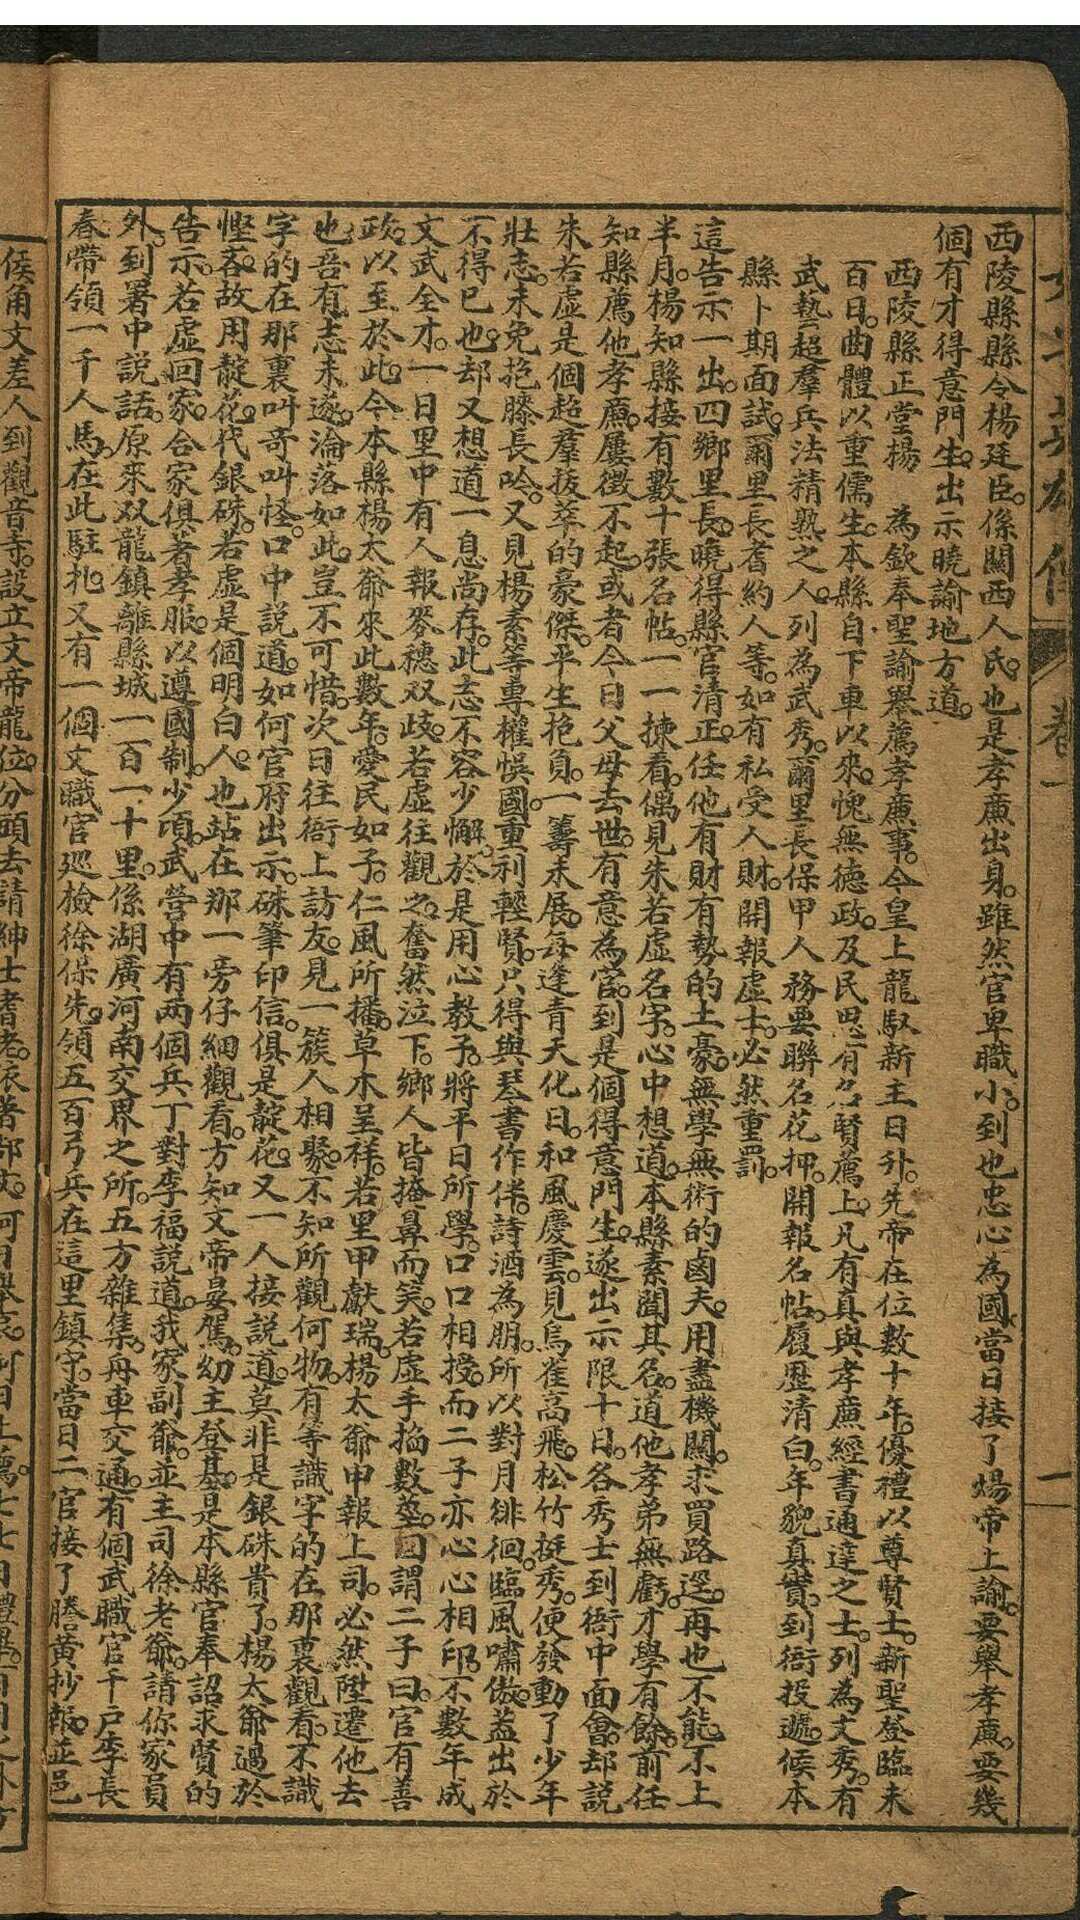 西陵縣縣令楊廷臣。係關西人氏。也是孝廉出身。雖然官卑職小。到也忠心為國。當日接了煬帝上諭。要舉孝廉。要幾
個有才得意門生。出示曉諭地方道。
西陵縣正堂楊　為欽奉聖諭舉薦孝廉事。今皇上龍馭新主日升。先帝在位數十年。優禮以尊賢士。新聖登臨未
百日。曲體以重儒生。本縣自下車以來。愧無德政。及民思有名賢薦上。凡有真與孝廉經書通達之士。列為文秀。有
武藝超羣兵法精熟之人。列為武秀。爾里長保甲人務要聯名花押。開報名帖。履歷清白。年貌真實。到衙投遞。候本
縣卜期面試。爾里長耆約人等。如有私受人財。開報虛士。必然重罰。
這告示一出。四鄉里長。曉得縣官清正。任他有財有勢的土豪。無學無術的鹵夫。用盡機關。求買路逕。再也不能。不上
半月。楊知縣接有數十張名帖。一一揀看。偶見朱若虛名字。心中想道。本縣素聞其名。道他孝弟無虧。才學有餘。前任
知縣薦他孝廉。屢徵不起。或者今日父母去世。有意為官。到是個得意門生。遂出示限十日。各秀士到衙中面會。却說
朱若虛是個超羣拔萃的豪傑。平生抱負。一籌未展。每逢青天化日。和風慶雲。見鳥雀高飛。松竹挺秀。便發動了少年
壯志。未免抱膝長吟。又見楊素等專權悞國。重利輕賢。只得與琴書作伴。詩酒為朋。所以對月徘徊。臨風嘯傲。蓋出於
不得已也。却又想道一息尚存。此志不容少懈。於是用心教子。將平日所學。口口相授。而二子亦心心相印。不數年成
文武全才。一日里中有人報麥穗双歧。若虛往觀之。奮然泣下。鄉人皆掩鼻而笑。若虛手掐數莖。回謂二子曰。官有善
政。以至於此。今本縣楊太爺來此數年。愛民如子。仁風所播。草木呈祥。若里甲獻瑞。楊太爺申報上司。必然陞遷他去
也。吾有志未遂。淪落如此。豈不可惜。次日往衙上訪友。見一簇人相聚。不知所觀何物。有等識字的在那裏觀看。不識
字的在那裏叫奇叫怪。口中說道。如何官府出示。硃筆印信。俱是靛花。又一人接說道。莫非是銀硃貴了。楊太爺過於
慳吝。故用靛花。代銀硃。若虛是個明白人。也站在那一旁仔細觀看。方知文帝晏駕。幼主登基。是本縣官奉詔求賢的
告示。若虛回家。合家俱著孝服。以遵國制。少頃。武營中有两個兵丁對李福說道。我家副爺。並主司徐老爺。請你家員
外。到署中說話。原來双龍鎮離縣城一百一十里。係湖廣河南交界之所。五方雜集。舟車交通。有個武職官千戶李長
春帶領一千人馬。在此駐扎。又有一個文職官廵檢徐保先。領五百弓兵在這里鎮守。當日二官接了謄黃抄報。並邑
侯角文差人到觀音寺。設立文帝龍位。分頭去請紳士耆老。
卷一
一